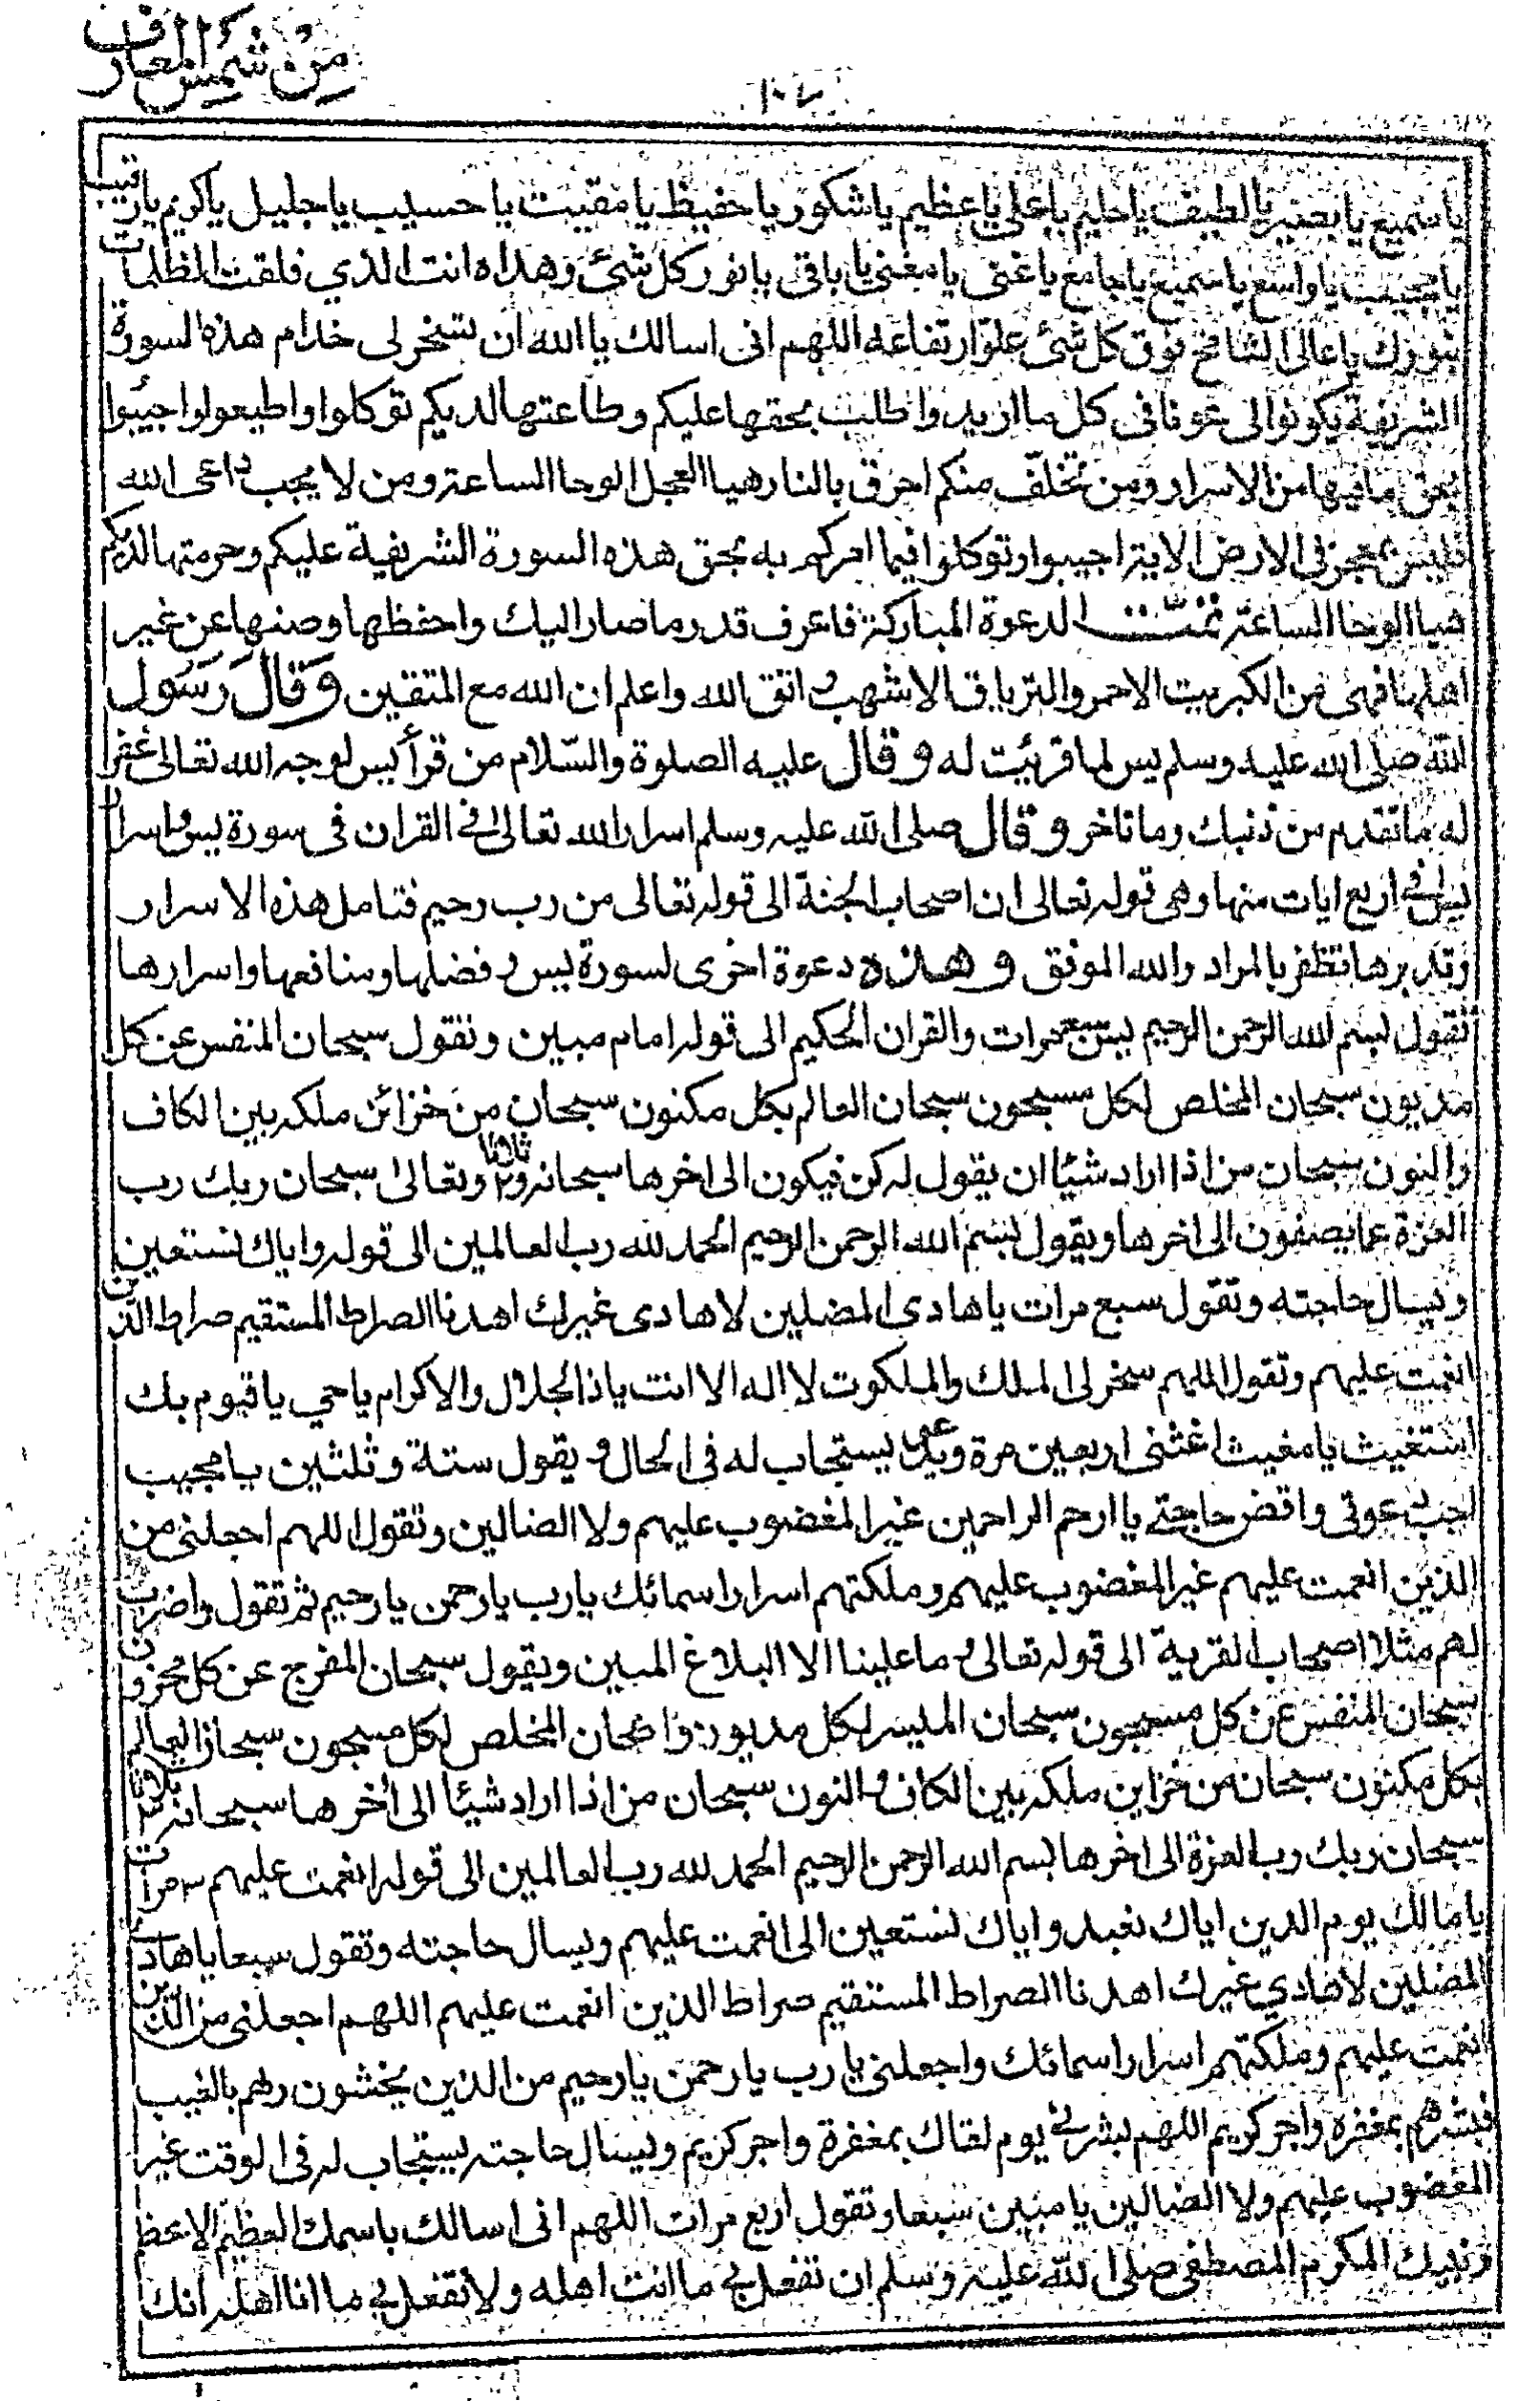 من شمس المعارف
١٠٧
يا سميع يا بصير يا لطيف يا حليم يا على يا عظيم يا شكور يا حفيظ يا مقيت يا حسيب يا جليل يا كريم يا رقيب
يا مجيب يا واسع يا سميع يا جامع يا غنى يا مغنى يا باقى يا نور كل شئ وهداه انت الذي فلقت الظلمات
بنورك يا عالى الشامخ فوق كل شئ علوّ ارتفاعه اللهم انى اسالك يا الله ان تسخر لى خدام هذه السورة
الشريفة يكونوا لى عونا فى كل ما اريد واطلب بحقها عليكم وطاعتها لديكم توكلوا واطيعوا واجيبوا
بحق ما فيها من الاسرار ومن تخلّف منكم احرق بالنار هيا العجل الوحا الساعة ومن لا يجب داعى الله
فليس بمعجز فى الارض الاية اجيبوا وتوكلوا فيما امركم به بحق هذه السورة الشريفة عليكم وحرمتها لديكم
هيا الوحا الساعة تمت الدعوة المباركة فاعرف قدر ما صار اليك واحفظها وصنها عن غير
اهلها فهى من الكبريت الاحمر والترياق الاشهب واتق الله واعلم ان الله مع المتقين وقال رسول
الله صلى الله عليه وسلم يس لما قرئت له وقال عليه الصلوة والسّلام من قرأ يس لوجه الله تعالى غفر
له ما تقدم من ذنبك وما تاخر وقال صلى الله عليه وسلم اسرار الله تعالى فى القران فى سورة يس واسرار
يس فى اربع ايات منها وهى قوله تعالى ان اصحاب الجنة الى قوله تعالى من رب رحيم فتامل هذه الاسرار
وتدبرها تظفر بالمراد والله الموفق وهذه دعوة اخرى لسورة يس وفضلها ومنافعها واسرارها
تقول بسم الله الرحمن الرحيم يس سبع مرات والقران الحكيم الى قوله امام مبين وتقول سبحان المنفس عن كل
مديون سبحان المخلص لكل مسجون سبحان العالم بكل مكنون سبحان من خزائن ملكه بين الكاف
والنون سبحان من اذا اراد شيئا ان يقول له كن فيكون الى اخرها سبحانه ثلاثا وتعالى سبحان ربك رب
العزة عما يصفون الى اخرها ويقول بسم الله الرحمن الرحيم الحمد لله رب العالمين الى قوله واياك نستعين
ويسال حاجته وتقول سبع مرات يا هادى المضلين لا هادى غيرك اهدنا الصراط المستقيم صراط الذين
انعمت عليهم وتقول اللهم سخر لى الملك والملكوت لا اله الا انت يا ذا الجلال والاكرام يا حي يا قيوم بك
استغيث يا مغيث اغثنى اربعين مرة ويدعى يستجاب له فى الحال ويقول ستة وثلثين يا مجيب
اجب دعوتى واقض حاجتى يا ارحم الراحمين غير المغضوب عليهم ولا الضالين وتقول اللهم اجعلنى من
الذين انعمت عليهم غير المغضوب عليهم وملكتهم اسرار اسمائك يا رب يا رحمن يا رحيم ثم تقول واضرب
لهم مثلا اصحاب القرية الى قوله تعالى وما علينا الا البلاغ المبين ويقول سبحان المفرج عن كل محزون
سبحان المنفس عن كل مسجون سبحان الميسر لكل مديون سبحان المخلص لكل مسجون سبحان العالم
بكل مكنون سبحان من خزاين ملكه بين الكاف والنون سبحان من اذا اراد شيئا الى أخرها سبحانه ٣ ثلاثا
سبحان ربك رب العزة الى اخرها بسم الله الرحمن الرحيم الحمد لله رب العالمين الى قوله انعمت عليهم ٣ مرات
يا مالك يوم الدين اياك نعبد واياك نستعين الى انعمت عليهم ويسال حاجته وتقول سبعا يا هادى
المضلين لا هادي غيرك اهدنا الصراط المستقيم صراط الذين انعمت عليهم اللهم اجعلنى من الذين
انعمت عليهم وملكتهم اسرار اسمائك واجعلنى يا رب يا رحمن يا رحيم من الذين يخشون ربهم بالغيب
فبشرهم بمغفرة واجر كريم اللهم بشرنى يوم لقاك بمغفرة واجر كريم ويسال حاجته يستجاب له فى الوقت غير
المغضوب عليهم ولا الضالين يا مبين سبعا وتقول اربع مرات اللهم انى اسالك باسمك العظيم الاعظم
ونبيك المكرم المصطفى صلى الله عليه وسلم ان تفعل بى ما انت اهله ولا تفعل بى ما انا اهله انك